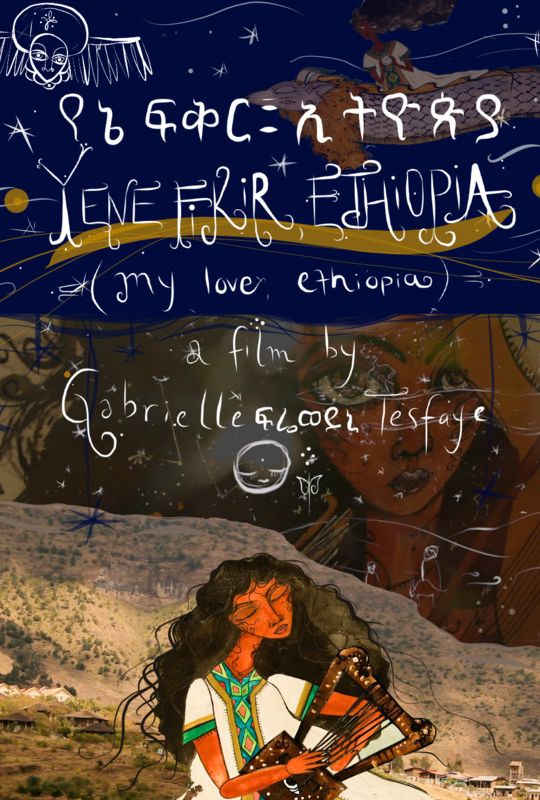 የኔ ፍቅር፡ ኢትዮጵያ
YENE FiKiR, ETHiOPiA
(my love, ethiopia)
a film by
Gabrielle ፍሬወይኒ Tesfaye